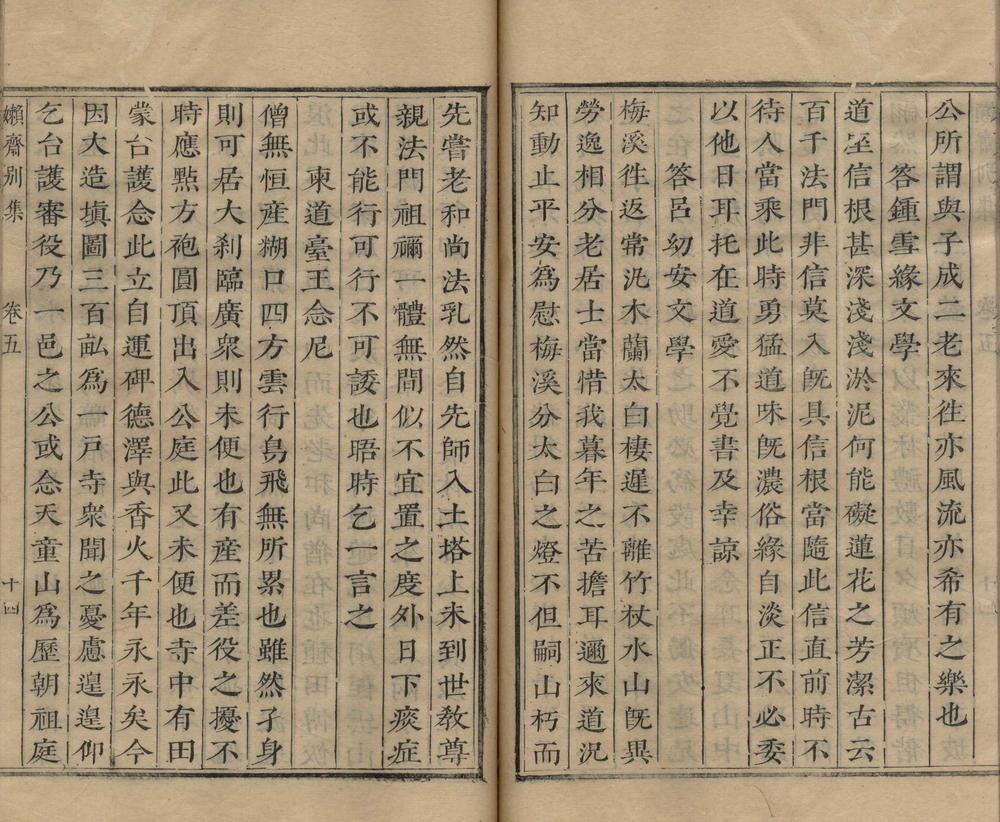 公所謂與子成二老來徃亦風流亦希有之樂也
答鍾雪緣文學
道至信根甚深淺淺淤泥何能礙蓮花之芳潔古云
百千法門非信莫入旣具信根當隨此信直前時不
待人當乘此時勇猛道味旣濃俗緣自淡正不必委
以他日耳托在道愛不覺書及幸諒
答呂㓜安文學
梅溪徃返常汎木蘭太白棲遲不離竹杖水山旣異
勞逸相分老居士當惜我暮年之苦擔耳邇來道況
知動止平安為慰梅溪分太白之燈不但嗣山朽而
先嘗老和尚法乳然自先師入土塔上未到世教尊
親法門祖禰一體無間似不宜置之度外日下痰症
或不能行可行不可諉也晤時乞一言之
柬道臺王念尼
僧無恒産糊口四方雲行鳥飛無所累也雖然孑身
則可居大刹臨廣衆則未便也有産而差役之擾不
時應㸃方袍圓頂出入公庭此又未便也寺中有田
蒙台護念此立自運碑德澤與香火千年永永矣今
因大造塡圖三百畆為一戸寺衆聞之憂慮遑遑仰
乞台護審役乃一邑之公或念天童山為歷朝祖庭
嬾齋别集 卷五 十四